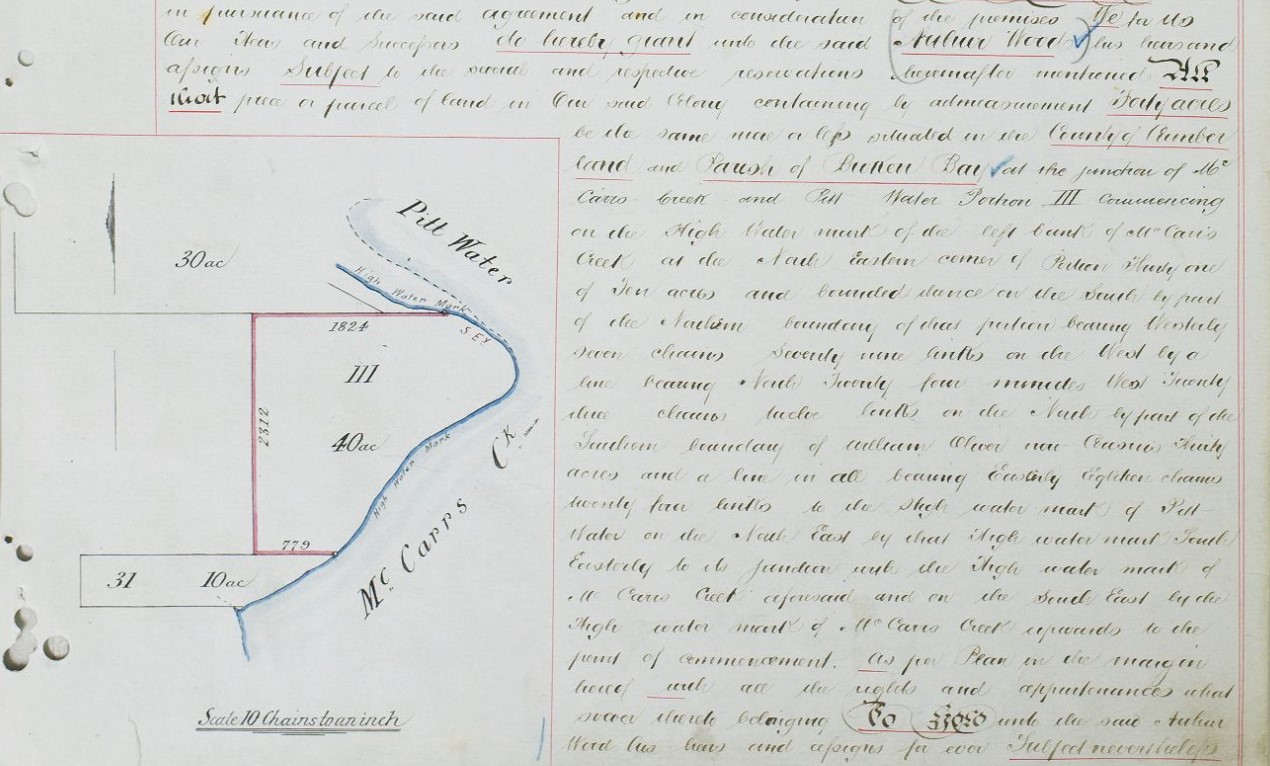 in pursuance of the said agreement and in consideration of the premises We for Us
Our Heirs and Successors do hereby grant unto the said Arthur Wood his heirs and
assigns Subject to the several and respective reservations hereinafter mentioned All
that piece or parcel of land in Our said Colony containing by admeasurement Forty acres
be the same more or less situated in the County of Cumber
land and Parish of Broken Bay at the junction of Mc
Carrs Creek and Pitt Water Portion III Commencing
on the High Water mark of the left bank of Mc Carrs
Creek at the North Eastern corner of Portion Thirty one
of Ten acres and bounded thence on the South by part
of the Northern boundary of that portion bearing Westerly
seven chains Seventy nine links on the West by a
line bearing North Twenty four minutes West Twenty
three chains twelve links on the North by part of the
Southern boundary of William Oliver Thirty
acres and a line in all bearing Easterly Eighteen chains
twenty four links to the High water mark of Pitt
Water on the North East by that High water mark South
Easterly to its junction with the High water mark of
Mc Carrs Creek aforesaid and on the South East by the
High water mark of Mc Carrs Creek upwards to the
point of commencement. As per Plan in the margin
hereof with all the rights and appurtenances what
soever thereto belonging To Hold unto the said Arthur
Wood his heirs and assigns for ever Subject nevertheless
Pitt Water
30 ac
High Water Mark
S.Ey
1824
III
2312
40ac
High Water Mark
Ck
Mc Carrs
779
31 10ac
Scale 10 Chains to an inch